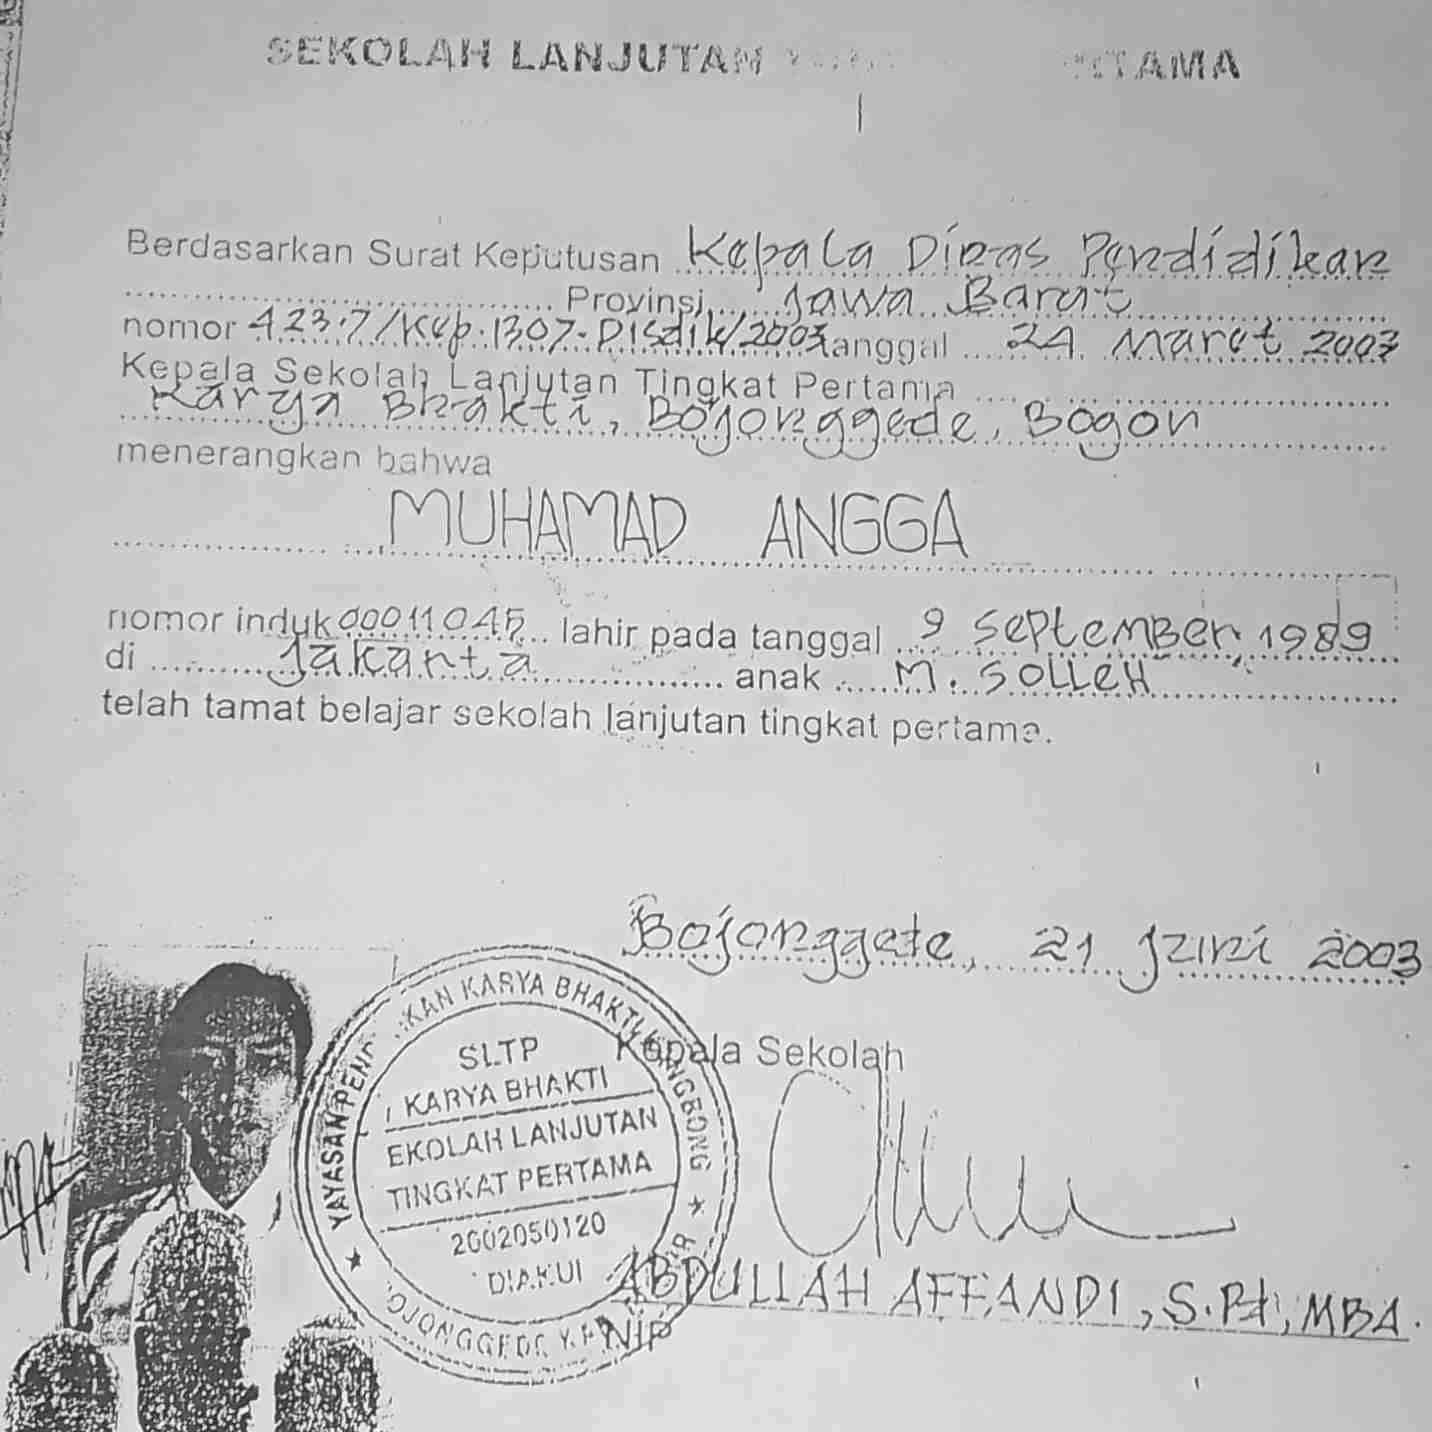 SEKOLAH LANJUTAN
Berdasarkan Surat Keputusan Kepala Dinas Pendidikan
Provinsi Jawa Barat
nomor 423.7/Kep.1307-Disdik/2003 tanggal 24 Maret 2003
Kepala Sekolah Lanjutan Tingkat Pertama
Karya Bhakti, Bojonggede, Bogor
menerangkan bahwa
MUHAMAD ANGGA
nomor induk 00011045 lahir pada tanggal 9 September 1989
di Jakarta anak M. SOLLEH
telah tamat belajar sekolah lanjutan tingkat pertama.
Bojonggete, 21 Juni 2003
Kepala Sekolah
YAYASAN KARYA BHAKTI
SLTP
KARYA BHAKTI
EKOLAH LANJUTAN
TINGKAT PERTAMA
2002050120
DIAKUI
ABDULLAH AFFANDI, S.Pd, MBA.
NIP